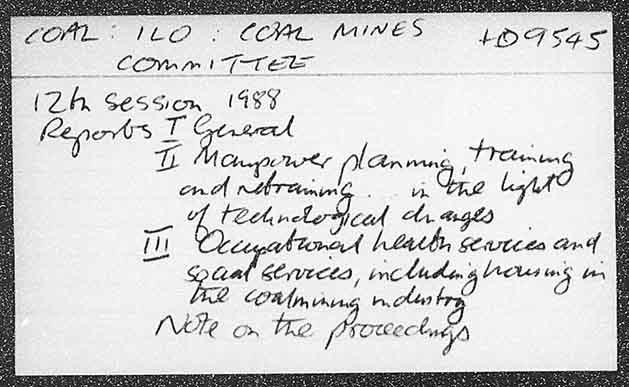 COAL : ILO : COAL MINES HD9545
COMMITTEE
12th session 1988
Reports I General
II Manpower planning, training
and retraining... in the light
of technological changes
III Occupational health services and
social services, including housing in
the coalmining industry
Note on the proceedings